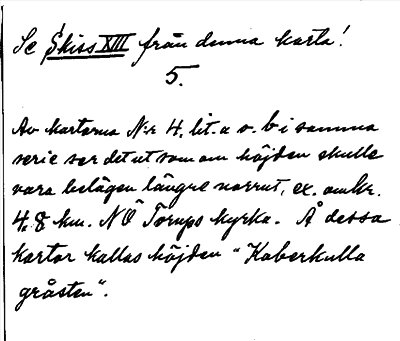 Se Skiss XIII från denna karta!
5.
Av kartorna N:r 4, lit. a o. b i samma
serie ser det ut som om höjden skulle
vara belägen längre norrut, ex. omkr.
4,8 km. NÖ Torups kyrka. Å dessa
kartor kallas höjden "Kaberkulla
gråsten".